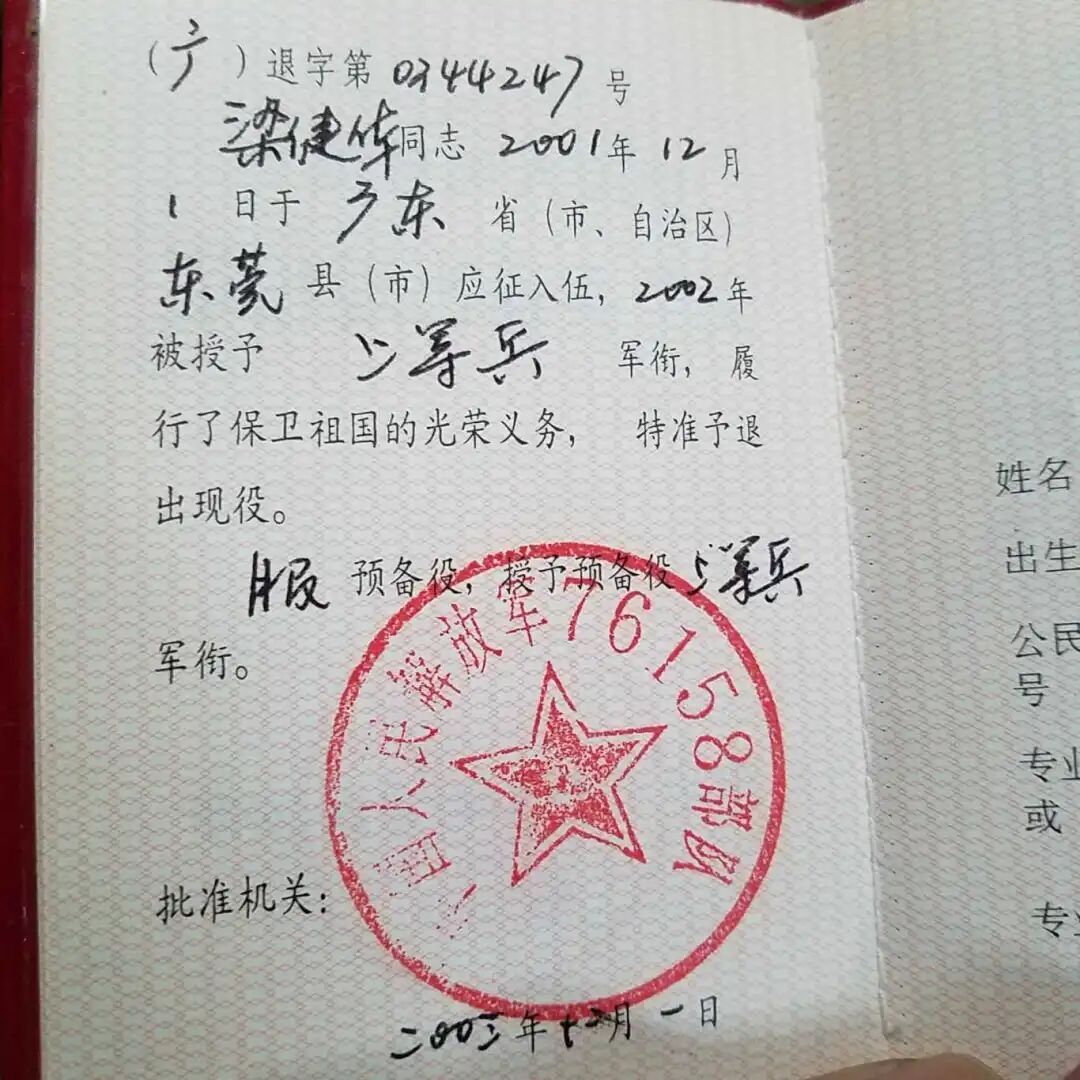 (广)退字第0344247号
梁健华同志 2001年12月
1日于广东省(市、自治区)
东莞县(市)应征入伍,2002年
被授予 上等兵 军衔,履
行了保卫祖国的光荣义务, 特准予退
出现役。
服预备役,授予预备役上等兵
军衔。
中国人民解放军76158部队
批准机关:
二00三年十二月一日
姓名
出生
公民
号
专业
或
专业